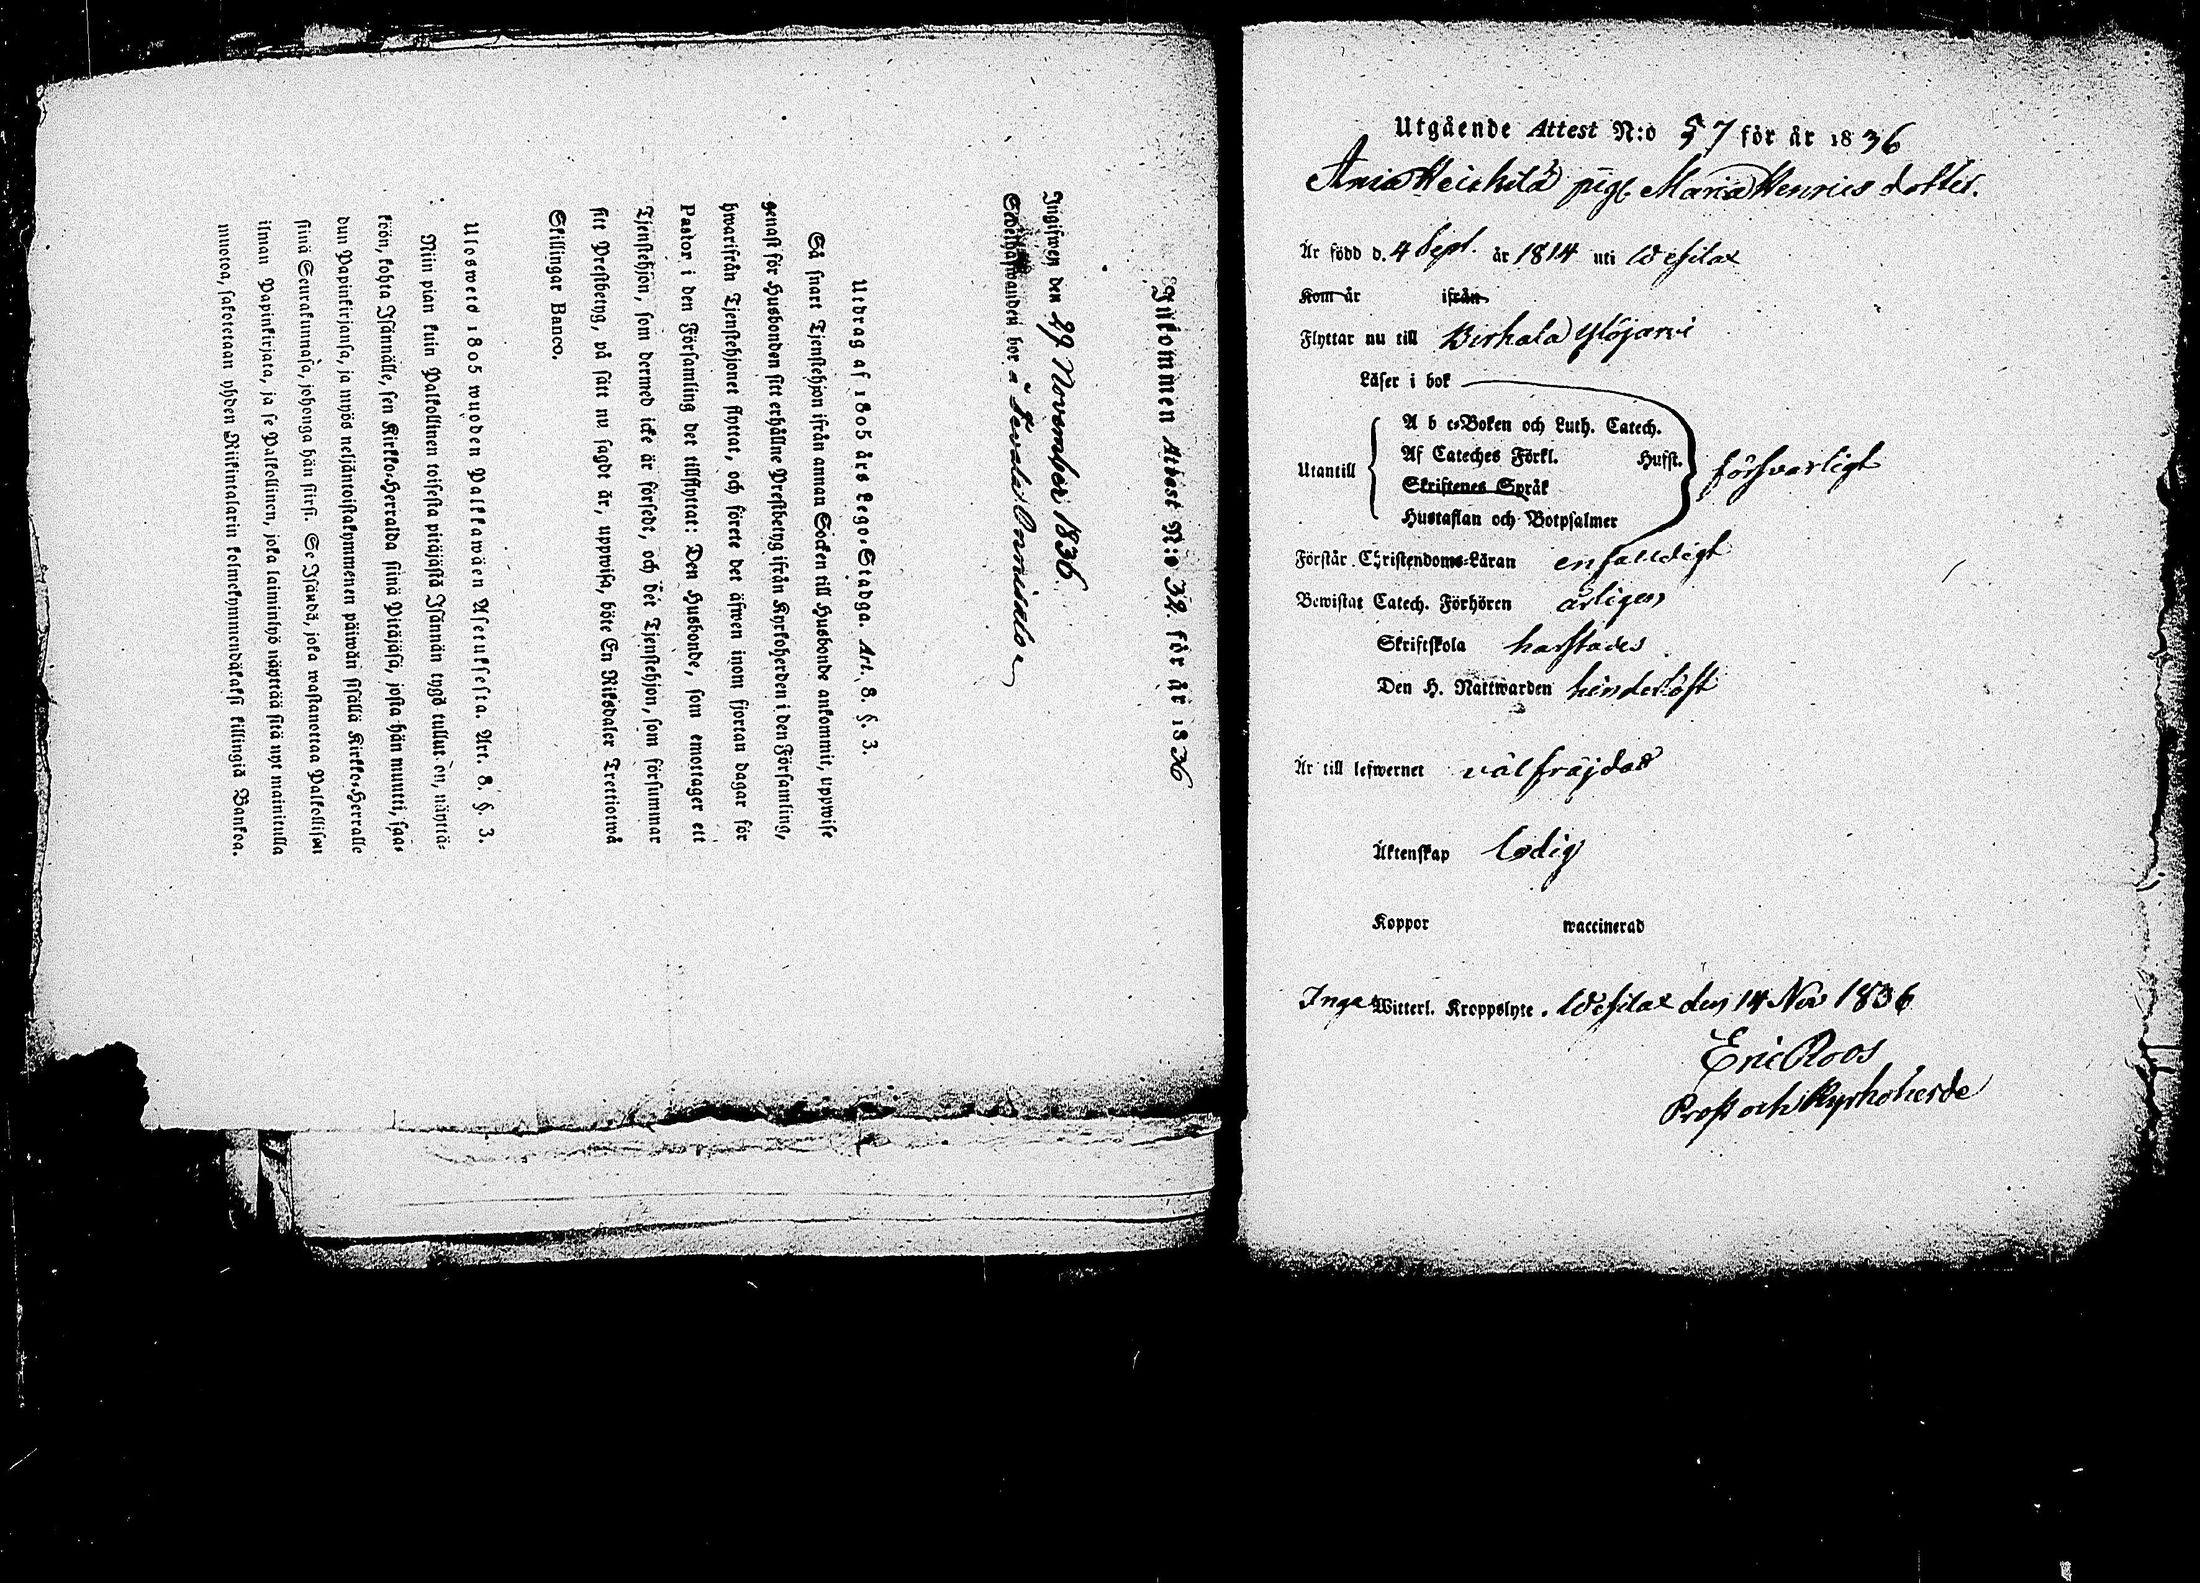 Inkommen Attest N:o 32. för år 1836
Ingifwen den 29 November 1836.
bor å
Utdrag af 1805 års Lego-Stadga. Art. 8. §. 3.
Så snart Tjenstehjon ifrån annan Socken till Husbonde ankommit, uppwise
genast för Husbonden sitt erhållne Prestbetyg ifrån Kyrkoherden i den Församling,
hwarifrån Tjenstehjonet flyttat, och förete det äfwen inom fjortan dagar för
Pastor i den Församling det tillflyttat: Den Husbonde, som emottager ett
Tjenstehjon, som dermed icke är försedt, och det Tjenstehjon, som försummar
sitt Prestbetyg, på sätt nu sagdt är, uppwisa, böte En Riksdaler Trettiotwå
Skillingar Banco.
Uloswetö 1805 wuoden Palkkawäen Asetuksesta. Art. 8. §. 3.
Niin pian kuin Palkollinen toisesta pitäjästä Isännän tygö tullut on, näyttä-
köön, kohta Isännälle, sen Kirkko-Herralda siinä Pitäjäsä, josta hän muutti, saa-
dun Papinkirjansa, ja myös neljäntoistakymmenen päiwän sisällä Kirkko-Herralle
siinä Seurakunnasa, johonga hän siirsi. Se Isändä, joka wastanottaa Palkollisen
ilman Papinkirjata, ja se Palkollinen, joka laiminlyö näyttää sitä nyt mainitulla
muotoa, sakotetaan yhden Riikintalarin kolmekymmendäkaksi killingiä Bankoa.
Utgående Attest N:o 57 för år 1836
Heickilä pig. Maria Henricsdotter.
Är född d. 4 Sept. år 1814 uti Wesilax
Kom år ifrån
Flyttar nu till Birkala Ylöjärvi
Läser i bok
A b c-Boken och Luth. Catech.
Af Cateches Förkl. Husst.
Utantill försvarligt
Skriftenes Språk
Hustaflan och Botpsalmer
Förstår Christendoms-Läran enfaldigt
Bewistat Catech. Förhören årligen
Skriftskola
Den H. Nattwarden hinderlöst
Är till lefwernet välfräjdad
Äktenskap ledig
Koppor waccinerad
Inga Witterl. Kroppslyte. Wesilax den 14 Nov 1836
Eric Roos
Prost och Kyrkoherde